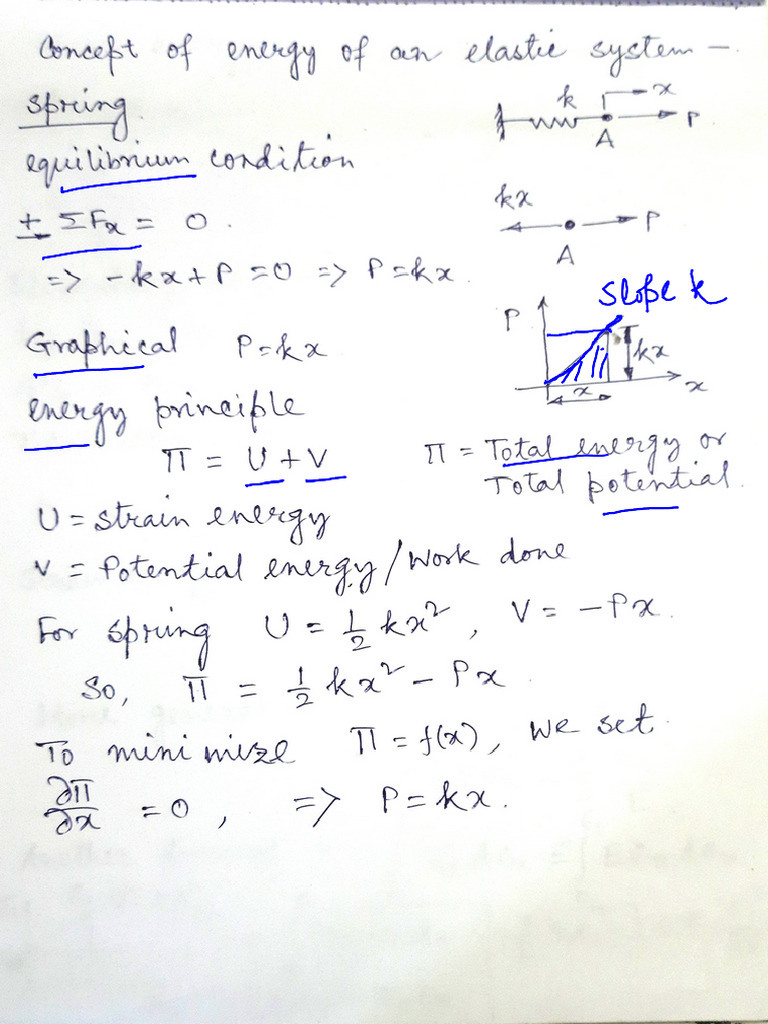 Concept of energy of an elastic system –
spring
k x
P
A
equilibrium condition
kx
P
A
+ ΣFx = 0.
=> -kx + P = 0 => P = kx
Slope k
P
kx
x
x
Graphical P = kx
energy principle
Π = U + V Π = Total energy or
Total potential.
U = strain energy
V = Potential energy/work done
For spring U = 1/2 kx², V = -Px.
So, Π = 1/2 kx² - Px
To minimize Π = f(x), we set
∂Π/∂x = 0, => P = kx.